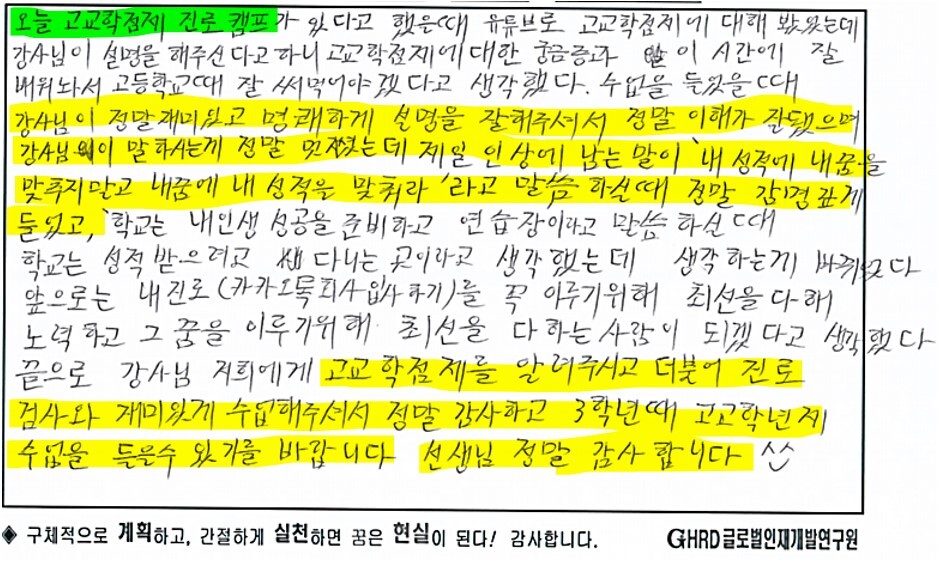 오늘 고교학점제 진로캠프가 있다고 했을때 유튜브로 고교학점제에 대해 봤었는데
강사님이 설명을 해주신다고하니 고교학점제에 대한 궁금증과 이 시간에 잘
배워놔서 고등학교때 잘 써먹어야겠다고 생각했다. 수업을 들었을때
강사님이 정말재미있고 명쾌하게 설명을 잘해주셔서 정말 이해가 잔됐으며
강사님이 말하시는게 정말 멋졌는데 제일 인상에 남는 말이 '내 성적에 내꿈을
맞추지말고 내꿈에 내 성적을 맞춰라'라고 말씀하실때 정말 감명깊게
들었고, '학교는 내인생 성공을 준비하고 연습장이라고 말씀 하신때
학교는 성적 받으려고 다니는 곳이라고 생각했는데 생각하는게 바뀌었다
앞으로는 내진로(카카오톡회사입사하기)를 꼭 이루기위해 최선을다해
노력하고 그 꿈을 이루기위해 최선을 다하는사람이 되겠다고 생각했다
끝으로 강사님 저희에게 고교학점제를 알려주시고 더불어 진로
검사와 재미있게 수업해주셔서 정말 감사하고 3학년때 고교학년제
수업을 들을수 있기를 바랍니다 선생님 정말 감사합니다 ^^
◈ 구체적으로 계획하고, 간절하게 실천하면 꿈은 현실이 된다! 감사합니다. GHRD글로벌인재개발연구원